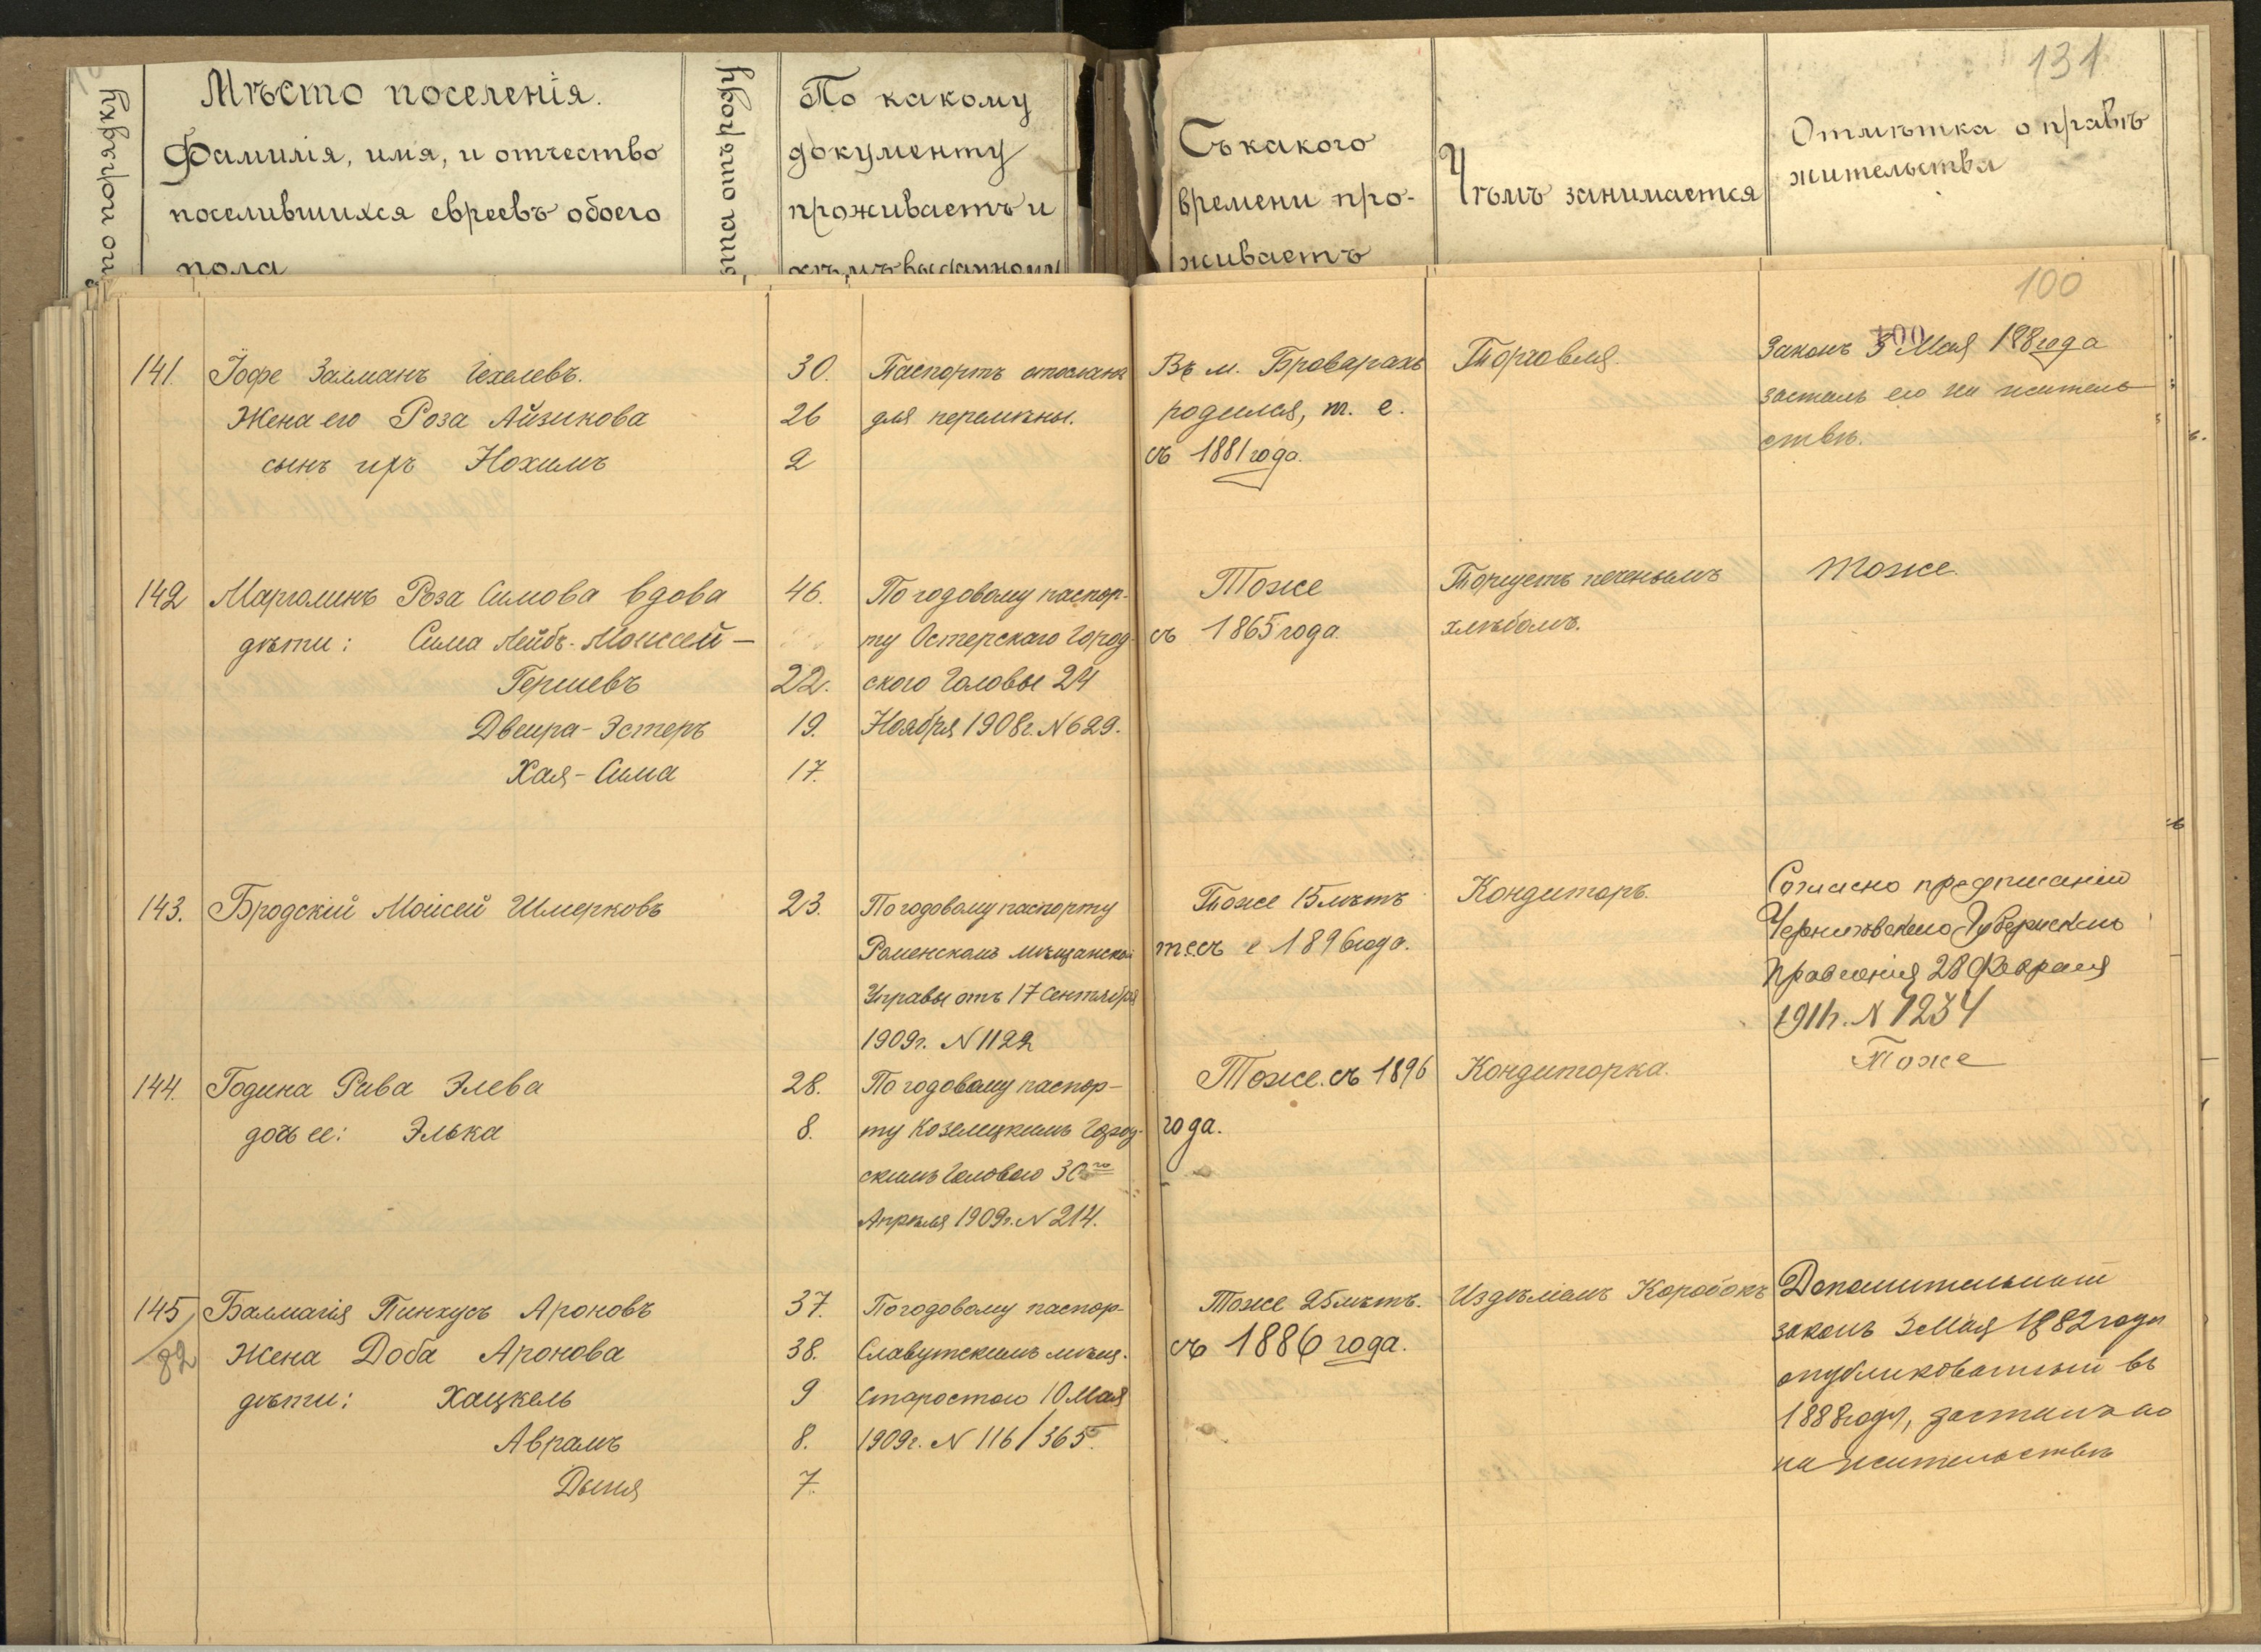 131
по порядку
Мѣсто поселенія.
Фамилія, имя, и отчество
поселившихся евреевъ обоего
пола
отъ роду
По какому
документу
проживаетъ и
Съ какого
времени про-
живаетъ
Чѣмъ занимается
Отмѣтка о правѣ
жительства
100
141. Іофе Залманъ Іехелевъ.
30.
Паспортъ отосланъ
Въ м. Броварахъ
Торговля.
Законъ 3 Мая 188 года
Жена его Роза Айзикова
26
для перемѣны.
родился, т. е.
засталъ его на житель
сынъ ихъ Нохимъ
2
съ 1881 года.
ствѣ.
142 Марголинъ Роза Симова вдова
46.
По годовому паспор-
Тоже
Торгуетъ печенымъ
Тоже.
дѣти: Сима Лейбъ-Моисей-
ту Остерскаго Город-
съ 1865 года.
хлѣбомъ.
Гершевъ
22.
ского Головы 24
Двейра-Эстеръ
19.
Ноября 1908г. N 629.
Хая-Сима
17.
143. Бродскій Моисей Шмерковъ
23.
По годовому паспорту
Тоже 15 лѣтъ
Кондиторъ.
Согласно предписанію
Роменскомъ мѣщанской
т.е.съ 1896 года.
Черниговскаго Губернскаго
Управы отъ 17 Сентября
Правленія 28 Февраля
1909г. N 1122
1911г. N 1234
144. Година Рива Элева
28.
По годовому паспор-
Тоже. съ 1896
Кондиторка.
Тоже
дочь ее: Элька
8.
ту Козелецкимъ Город-
года.
скимъ Головою 30го
Апрѣля 1909г. N 214.
145 Балмагія Пинхусъ Ароновъ
37.
По годовому паспор-
Тоже 25 лѣтъ.
Издѣліемъ Коробокъ
Дополнительный
82
Жена Доба Аронова
38.
Славутскимъ мѣщ.
съ 1886 года.
законъ 3 Мая 1882 года
дѣти: Хацкель
9
Старостою 10 Мая
опубликованный въ
Аврамъ
8.
1909г. N 116/365.
1888 году, засталъ его
Дыня
7.
на жительствѣ